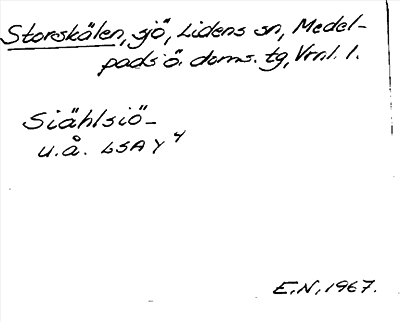 Storskälen, sjö, Lidens sn, Medel-
pads ö. doms. tg, Vrnl. l.
Siählsiö-
u.å. LSA Y 4
E.N, 1967.